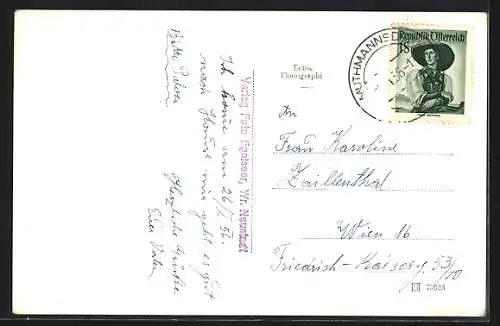 Ich komme am 26/I 56.
nach Hause mir geht es gut
Herzliche Grüße
Euer Vater
Bitte
Verlag Foto Egelseer, Wr. Neustadt
Echte
Photographi
MUTHMANNSD
Republik Österreich
1S
An
Frau Karoline
Zaillenthal
Wien 16
Friedrich-Kaiserg. 53/10